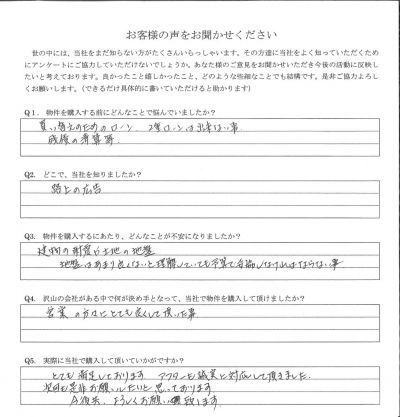 お客様の声をお聞かせください
世の中には、当社をまだ知らない方がたくさんいらっしゃいます。その方達に当社をよく知っていただくため
にアンケートにご協力していただけないでしょうか。あなた様のご意見をお聞かせいただき今後の活動に反映し
たいと考えております。良かったこと嬉しかったこと、どのような些細なことでも結構です。是非ご協力よろし
くお願いします。（できるだけ具体的に書いていただけると助かります）
Q1. 物件を購入する前にどんなことで悩んでいましたか？
買い替えのためのローン、2重ローンは出来ない事
残債の清算等
Q2. どこで、当社を知りましたか？
路上の広告
Q3. 物件を購入するにあたり、どんなことが不安になりましたか？
建物の耐震と土地の地盤
地盤はあまり良くないと理解していても予算で
しなければならない事
Q4. 沢山の会社がある中で何が決め手となって、当社で物件を購入して頂けましたか？
営業の方々にとても良くして頂いた事
Q5. 実際に当社で購入して頂いていかがですか？
とても満足しております アフターも誠実に対応して頂きました
次回も是非お願いしたいと思っております
今後共、よろしくお願い致します